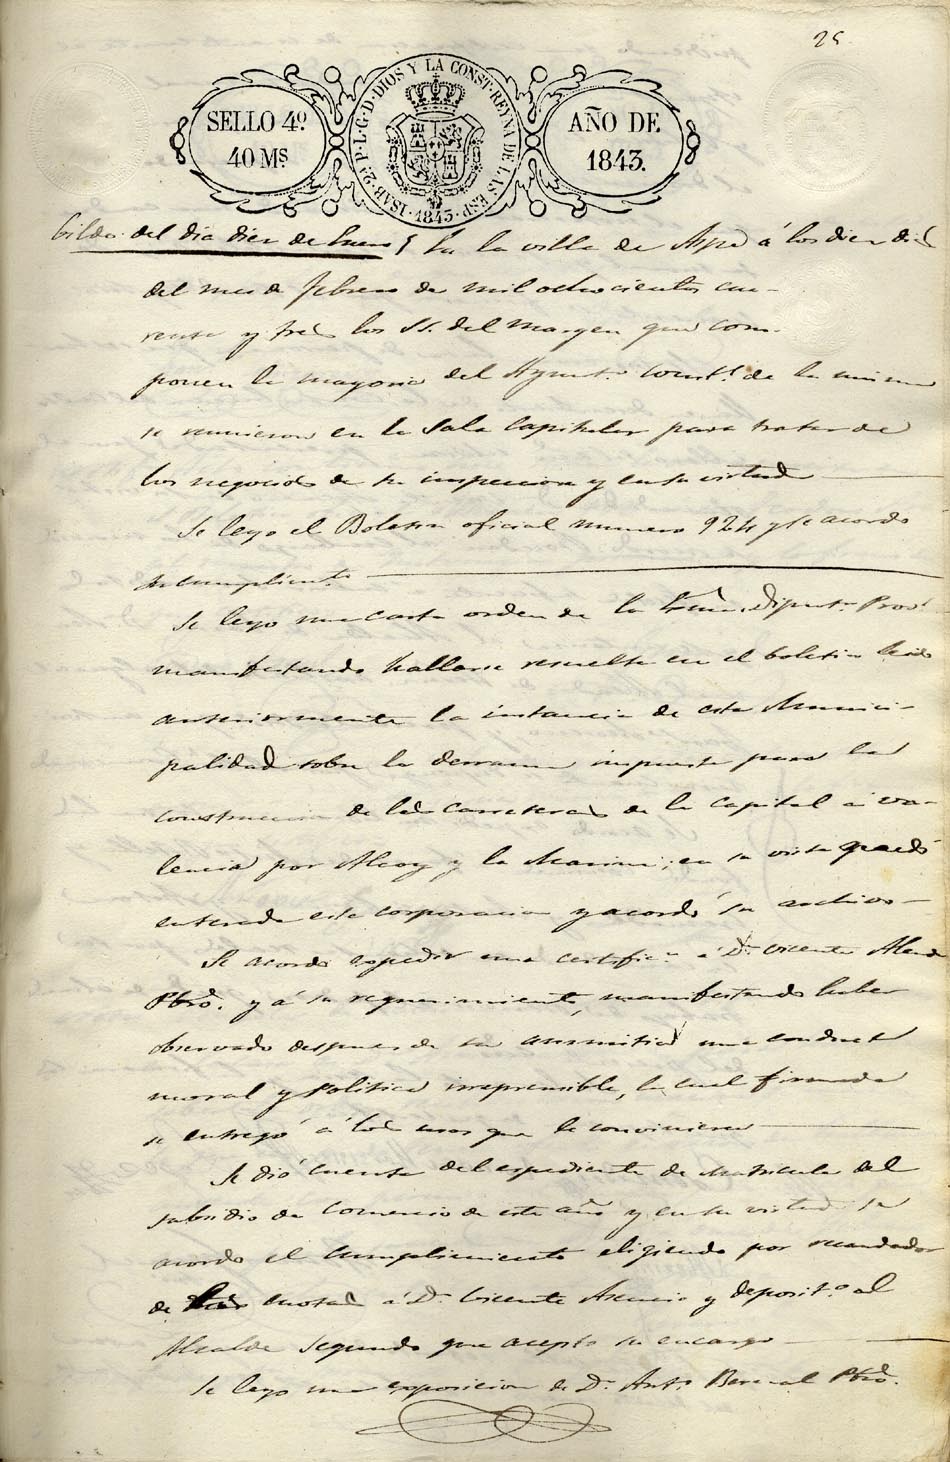 25
SELLO 4º.
40 Ms.
ISAB. 2ª P. L. G. D. DIOS Y LA CONST. REYNA DE LAS ESP. 1843
AÑO DE
1843.
bildo del dia diez de Enero } En la villa de Aspe á los diez dias
del mes de febrero de mil ochocientos cua-
renta y tres los SS. del Margen que com-
ponen la mayoria del Ayunt.º const.l de la misma
se reunieron en la Sala Capitular para tratar de
los negocios de su inspeccion y en su virtud
Se leyo el Boletin oficial numero 924 y se acordo
su cumplim.to
Se leyo una carta orden de la Ema. Diput.n Prov.l
manifestando hallarse resuelta en el boletin leido
anteriormente la instancia de esta Munici-
palidad sobre la derrama impuesta para la
construccion de las carreteras de la Capital á Va-
lencia por Alcoy y la Marina; en su vista quedó
enterada esta corporacion y acordó su archivo
Se acordo espedir una certific.n á D.n Vicente
Pbro. y á su requerimiento, manifestando haber
observado despues de su amnistia una conducta
moral y politica irreprensible, la cual firmada
se entregó á los usos que le convinieren
Se dió cuenta del espediente de Matricula del
subsidio de Comercio de este año y en su virtud se
acordo el cumplimiento eligiendo por recaudador
de las cuotas á D.n Vicente Asencio y deposit.º al
Alcalde Segundo que acepto su encargo
Se leyo una exposicion de D.n Ant.º Bercal Pbro.